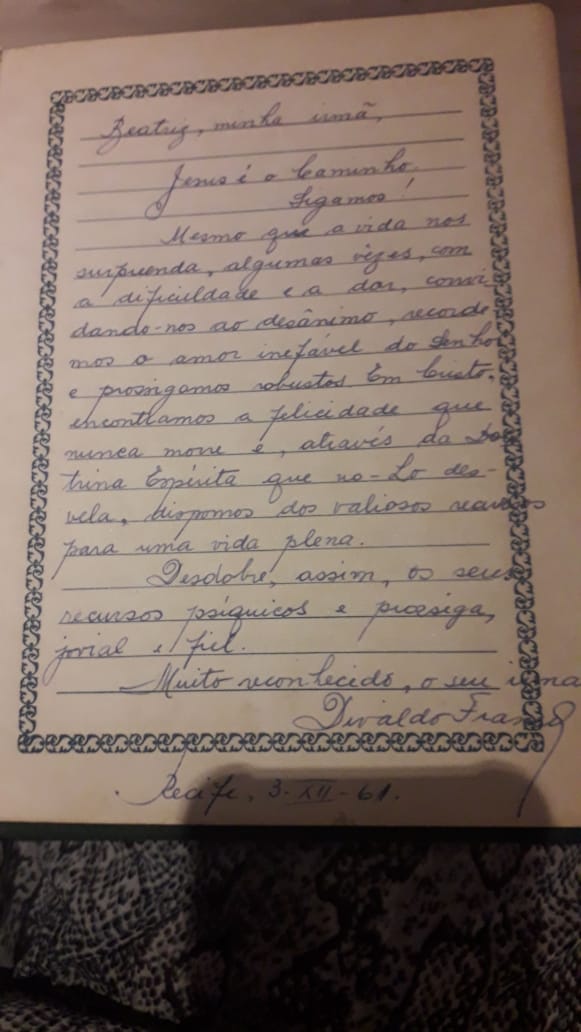 Beatriz, minha irmã,
Jesus é o Caminho.
Sigamos!
Mesmo que a vida nos
surpreenda, algumas vêzes, com
a dificuldade e a dor, convi
dando-nos ao desânimo, recorde
mos o amor inefável do Senho
e prossigamos robustos. Em Cristo,
encontramos a felicidade que
nunca morre e, através da Dou
trina Espírita que no-Lo des-
vela, dispomos dos valiosos recursos
para uma vida plena.
Desdobre, assim, os seus
recursos psíquicos e prossiga,
jovial e fiel.
Muito reconhecido, o seu irmã
Divaldo Franco
Recife, 3-XII-61.